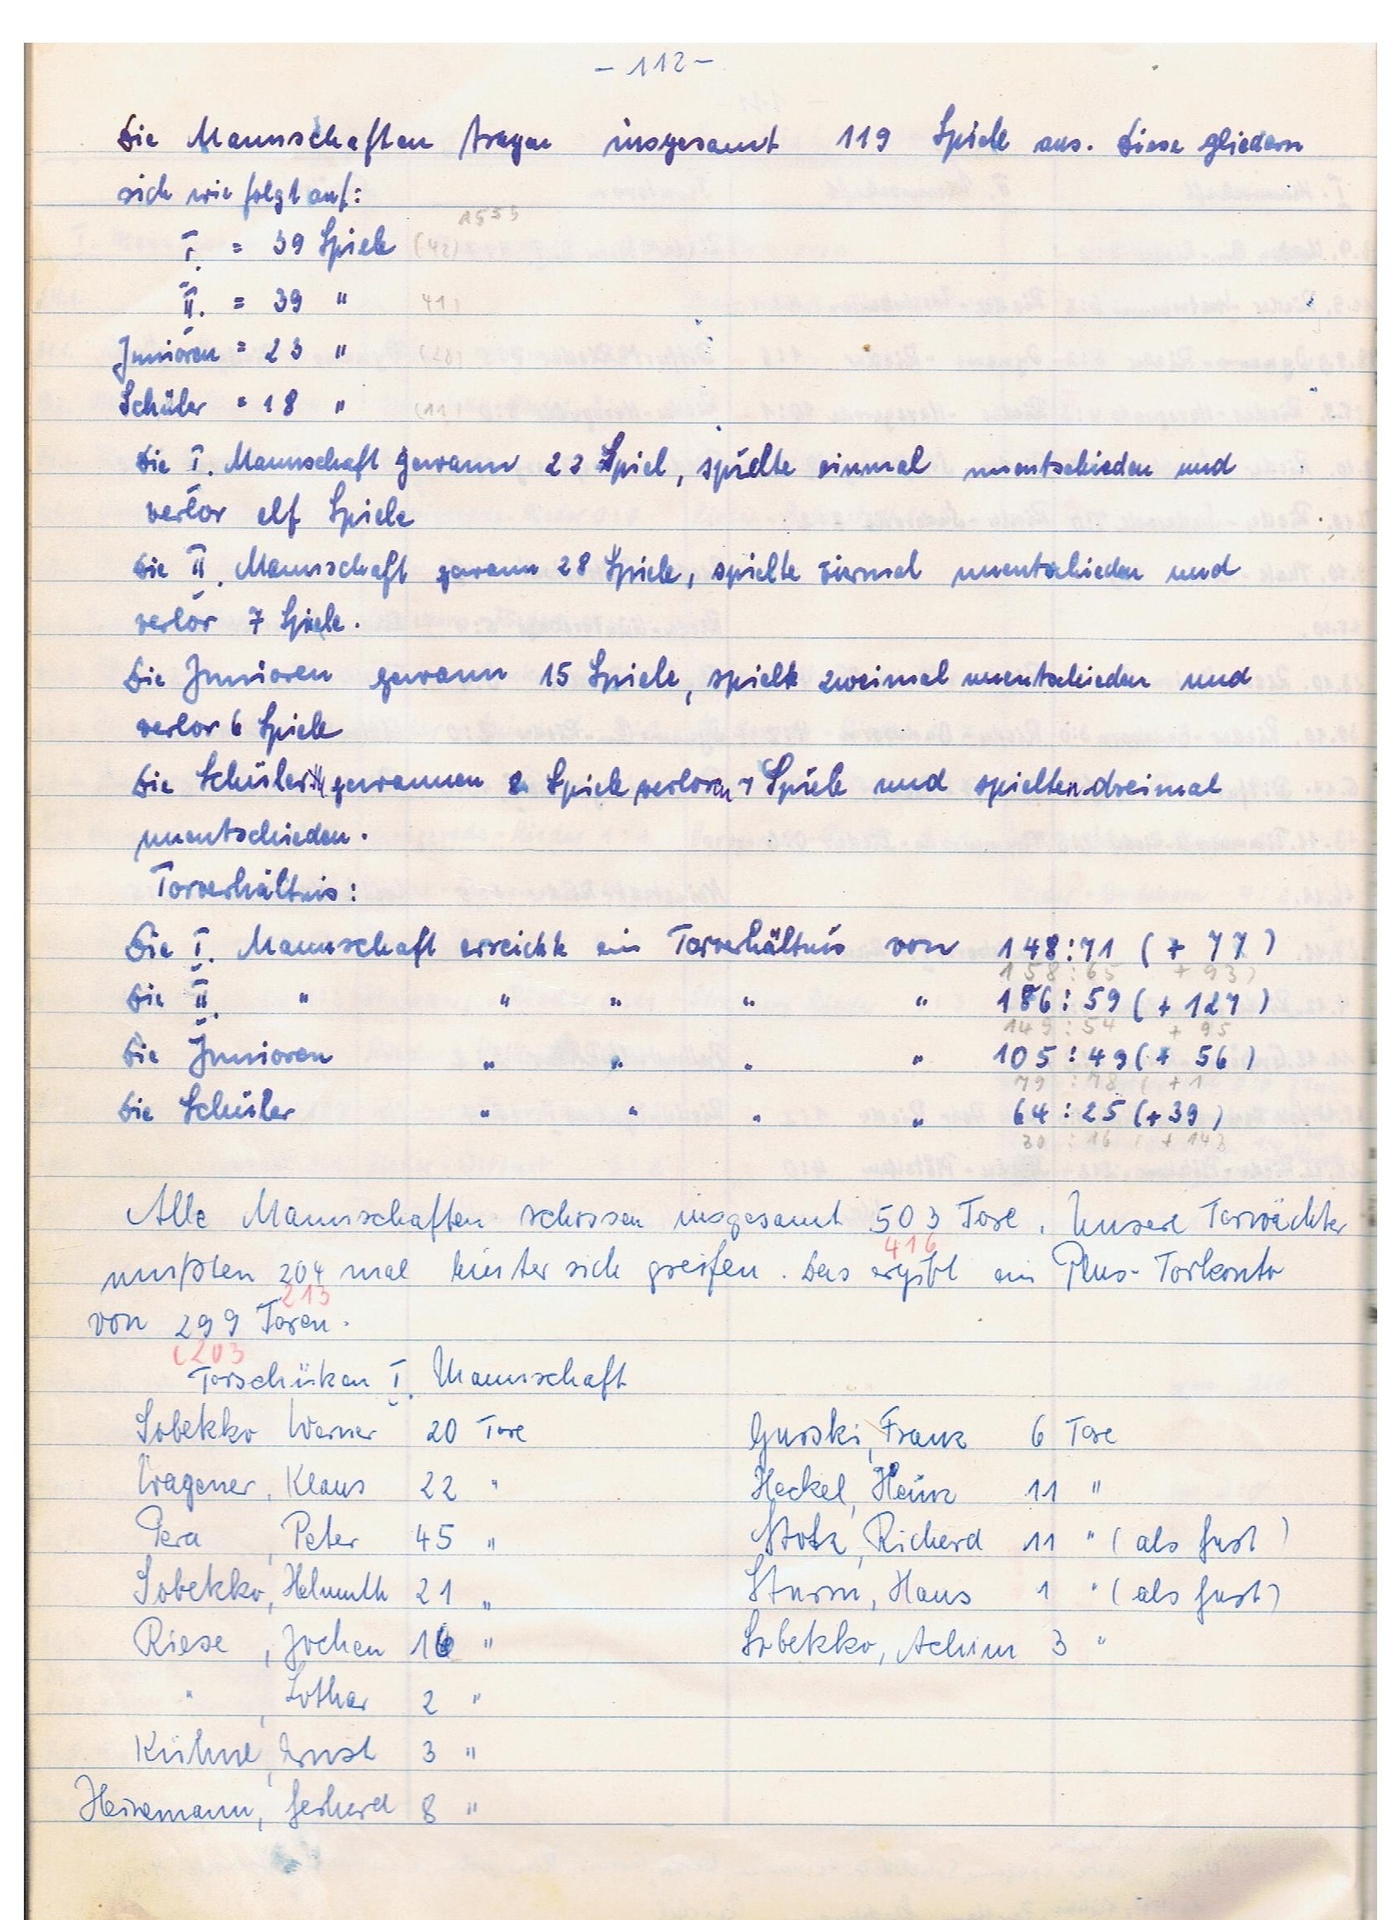 - 112 -
Die Mannschaften tragen insgesamt 119 Spiele aus. Diese gliedern
sich wie folgt auf:
1555
I. = 39 Spiele (42)
II. = 39 " 41)
Junioren = 23 "
Schüler = 18 " (11)
Die I. Mannschaft gewann Spiel, spielte einmal unentschieden und
verlor elf Spiele
Die II. Mannschaft gewann 28 Spiele, spielte viermal unentschieden und
verlor 7 Spiele.
Die Junioren gewann 15 Spiele, spielte zweimal unentschieden und
verlor 6 Spiele
Die Schüler gewannen 8 Spiele verloren 7 Spiele und spielten dreimal
unentschieden.
Torverhältnis:
Die I. Mannschaft erreichte ein Torverhältnis von 148:71 (+ 77)
158:65 + 93)
Die II. " " " " " 186:59 (+ 127)
149:54 + 95
Die Junioren " " " " 105:49 (+ 56)
79 :78 ( +1
Die Schüler " " " " 64:25 (+39)
30 :16 ( + 143
Alle Mannschaften schossen insgesamt 503 Tore. Unsere Torwächter
416
mußten 204 mal hinter sich greifen. Das ergibt ein Plus-Torkonto
213
von 299 Toren.
(203
Torschützen I. Mannschaft
Sobekko Werner 20 Tore Gurski, Franz 6 Tore
Wagener, Klaus 22 " Heckel, Heinz 11 "
Pera, Peter 45 " Stotz, Richerd 11 " (als Gast)
Sobekko, Helmuth 21 " Sturm, Hans 1 " (als Gast)
Riese, Jochen 16 " Sobekko, Achim 3 "
" , Lothar 2 "
Kühne, Ernst 3 "
Heinemann, Gerherd 8 "